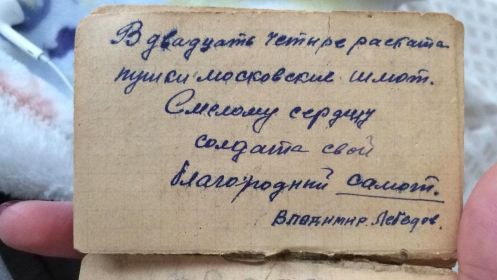 В двадцать четыре раската
пушки московские шлют.
Смелому сердцу
солдата свой
благородний салют.
Владимир Лебедов.